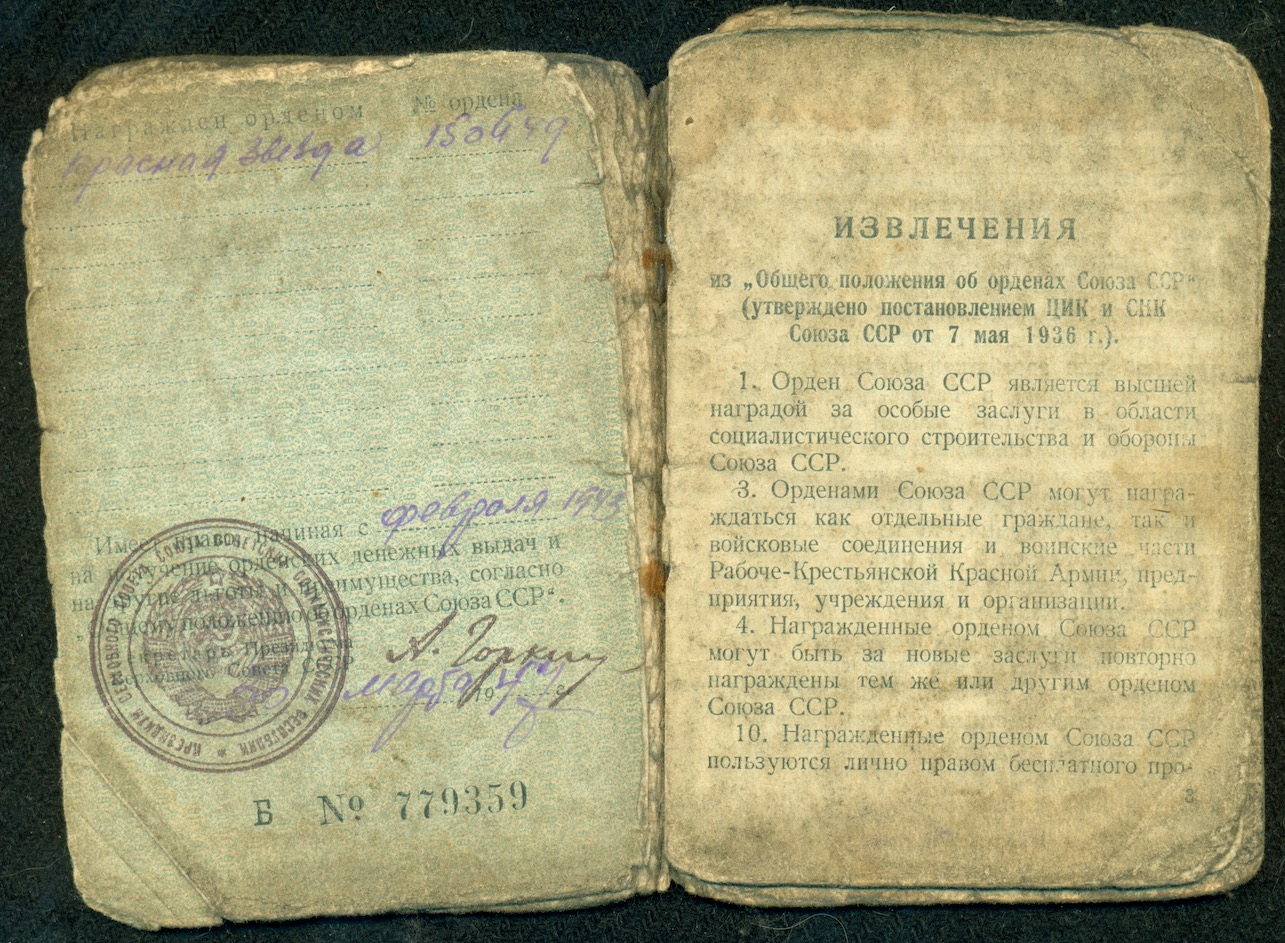 Награжден орденом № ордена
Красная Звезда
Имеет право, начиная с февраля 1943
на получение орденских денежных выдач и
на другие льготы и преимущества, согласно
„Общему положению об орденах Союза ССР“.
Секретарь Президиума
Верховного Совета СССР
А. Горкин
марта 19
Б № 779359
ИЗВЛЕЧЕНИЯ
из „Общего положения об орденах Союза ССР“
(утверждено постановлением ЦИК и СНК
Союза ССР от 7 мая 1936 г.).
1. Орден Союза ССР является высшей
наградой за особые заслуги в области
социалистического строительства и обороны
Союза ССР.
3. Орденами Союза ССР могут награ-
ждаться как отдельные граждане, так и
войсковые соединения и воинские части
Рабоче-Крестьянской Красной Армии, пред-
приятия, учреждения и организации.
4. Награжденные орденом Союза ССР
могут быть за новые заслуги повторно
награждены тем же или другим орденом
Союза ССР.
10. Награжденные орденом Союза ССР
пользуются лично правом бесплатного про-
3